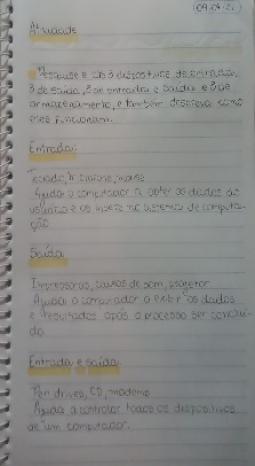 09.04.21
Atividade
Pesquise e cite 3 dispositivos de entrada,
3 de saída, 3 de entrada e saída e 3 de
armazenamento, e também descreva como
eles funcionam.
Entrada:
Teclado, microfone, mouse
Ajuda o computador a obter os dados do
usuário e os insere no sistema de computa-
ção
Saída
Impressoras, caixas de som, projetor
Ajuda o computador a exibir os dados
e resultados após o processo ser concluí-
do
Entrada e saída
Pen drives, CD, modems
Ajuda a controlar todos os dispositivos
de um computador.